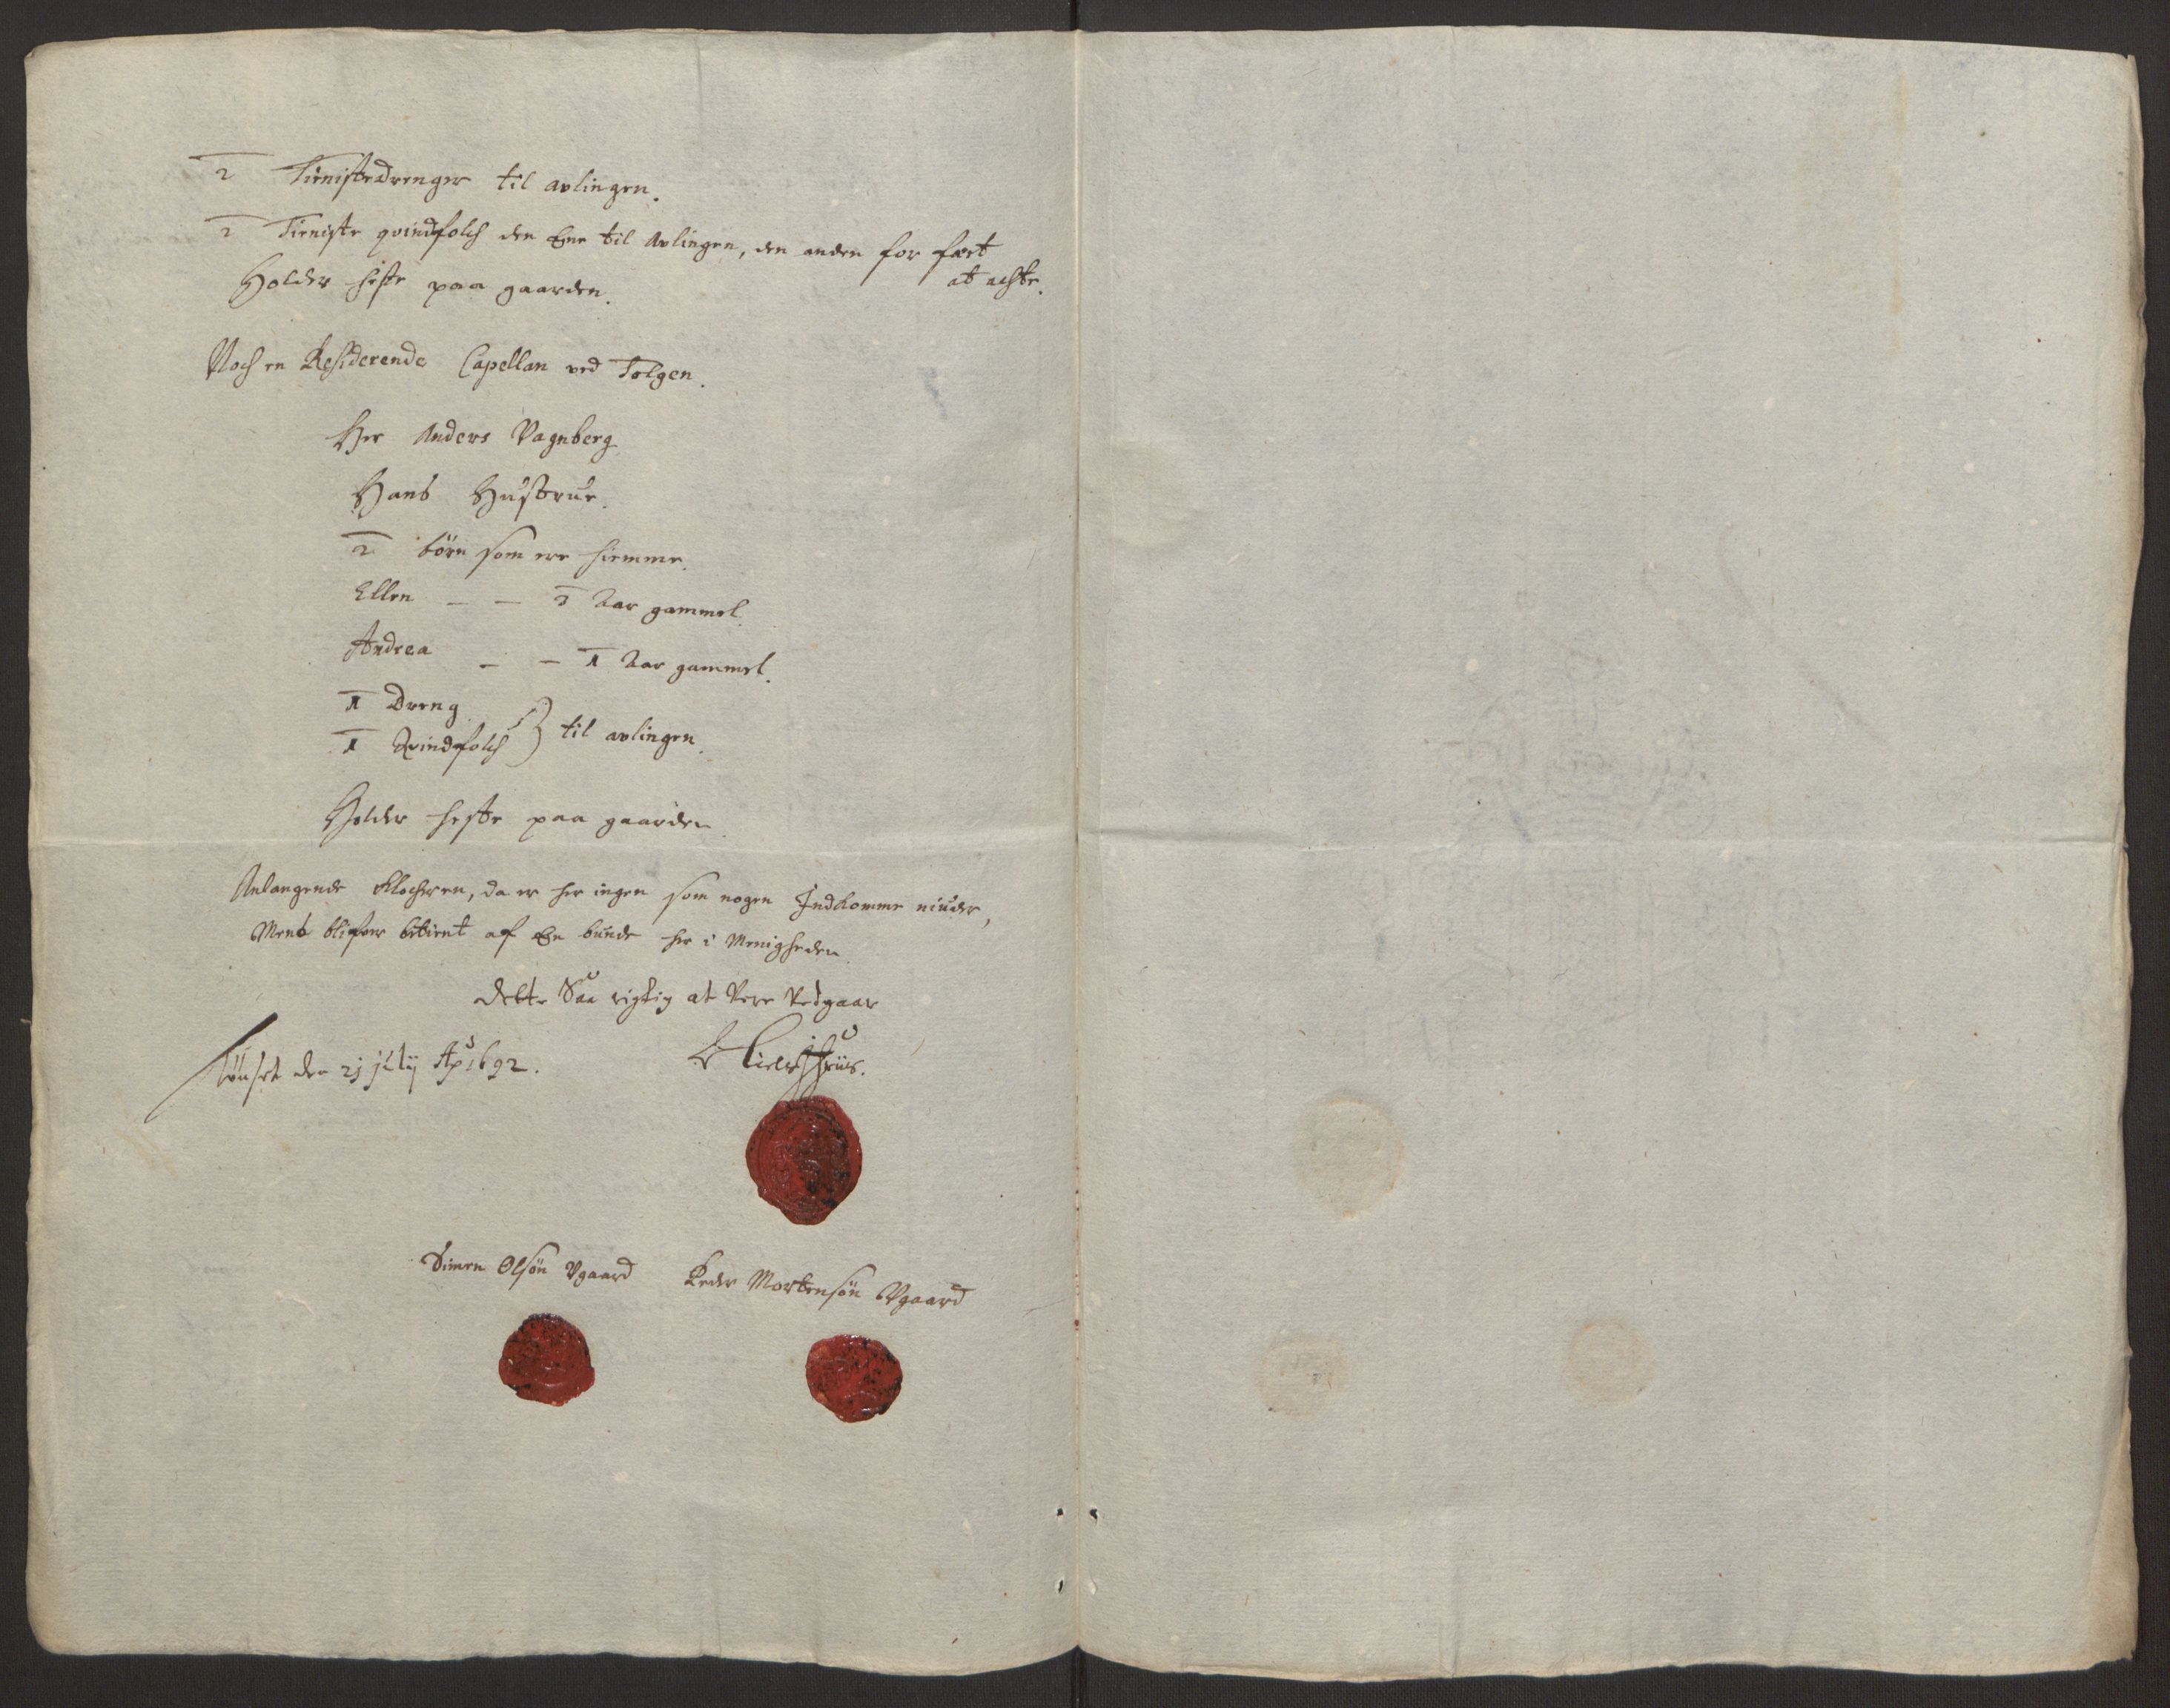 2 Tienistedrenger til avlingen.
2 Tieniste qvindfolch den Ene til Avlingen, den anden for fæet
at achte.
Holder heste paa gaarden.
Noch en Residerende Capellan ved Tolgen.
Her Anders Vagnberg
Hans Hustrue.
2 børn som ere hiemme.
Ellen — — 3 Aar gammel.
Andrea — — 1 Aar gammel.
1 Dreng
1 Qvindfolch } til avlingen.
Holder heste paa gaarden
Anlangende Klocheren, da er her ingen som nogen Indkomme niuder,
Mens blifver betient af En bunde her i Menigheden
Dette Saa rigtig at Vere Vedgaar
den 21 july Ao 1692.
Simen Olsøn Vgaard Peder Mortensøn Vgaard